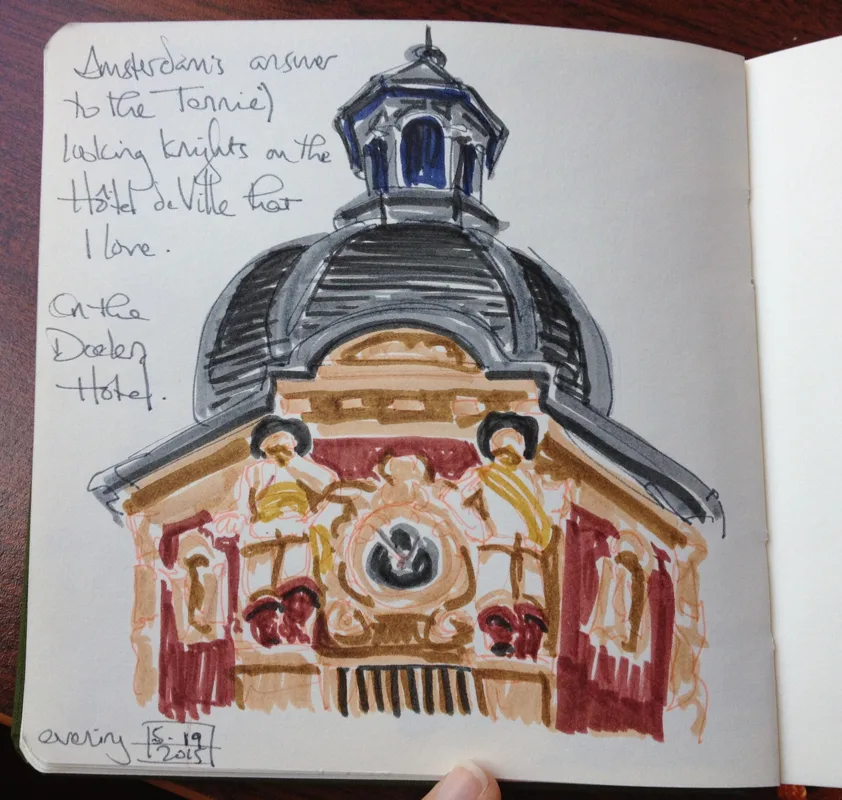 Amsterdam's answer
to the Tonnie?)
looking knights on the
Hôtel de Ville that
I love.
On the
Doelen
Hotel.
evening 5-19
2015